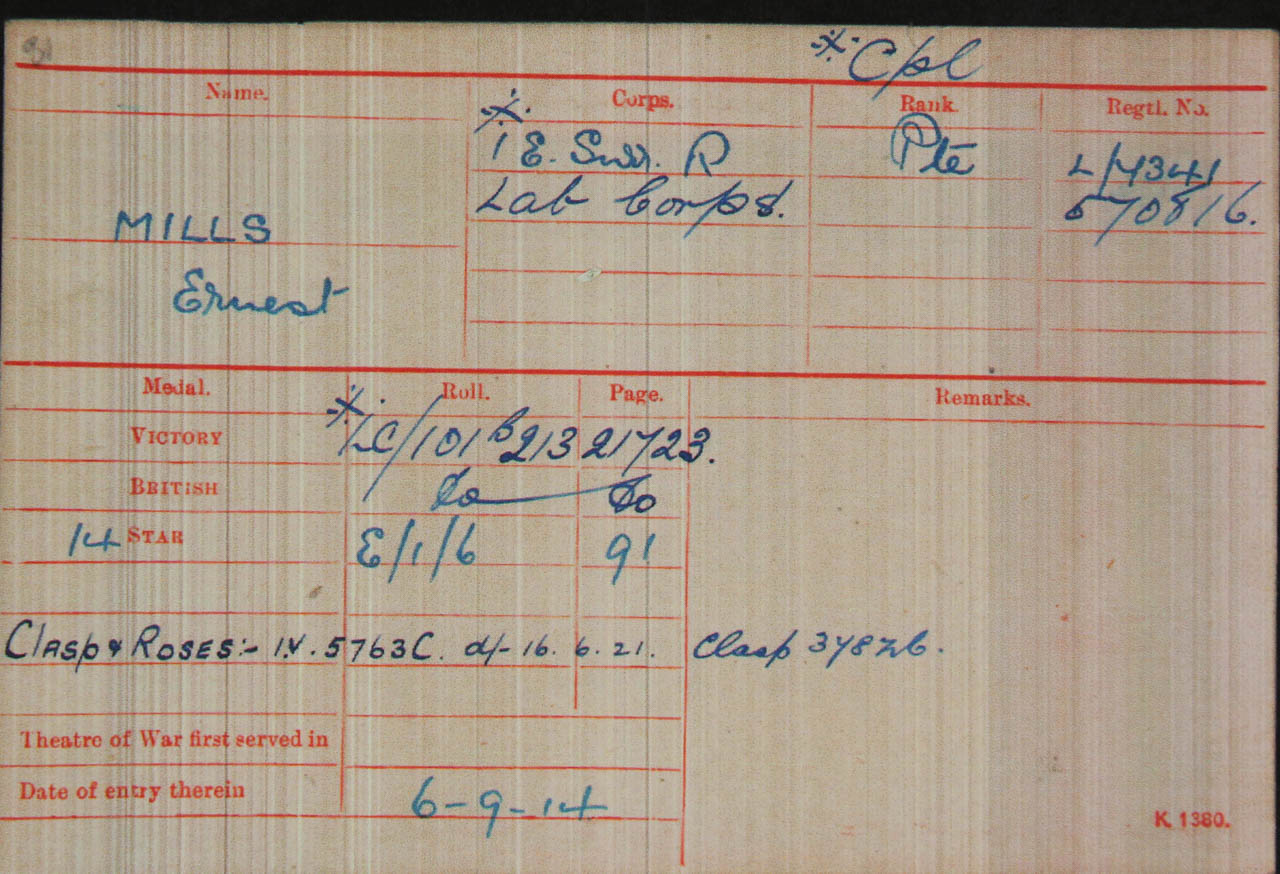 ※ Cpl
Name. Corps. Rank. Regtl. No.
※
1 E. Surr. R Pte L/7341
Lab Corps. 570816.
MILLS
Ernest
Medal. Roll. Page. Remarks.
※
VICTORY LC/101 B213 21723.
BRITISH do do
14 STAR E/1/6 91
Clasp & ROSES:- I.V. 5763C. d/- 16. 6. 21. Clasp 3787b.
Theatre of War first served in
Date of entry therein 6-9-14
K. 1380.